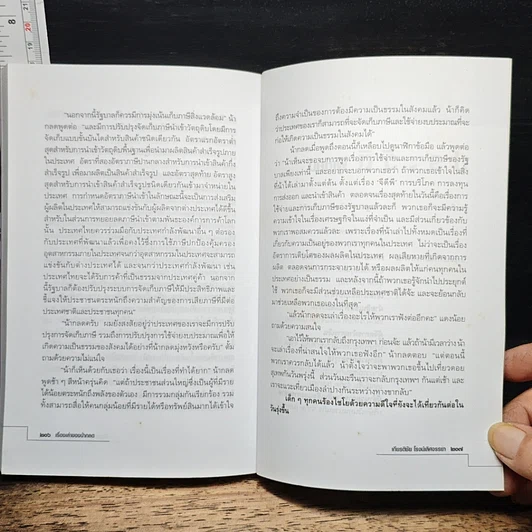 "นอกจากนี้รัฐบาลก็ควรมีการมุ่งเน้นเก็บภาษีสิ่งแวดล้อม" น้า
กลดพูดต่อ "และมีการปรับปรุงจัดเก็บภาษีนำเข้าวัตถุดิบโดยมีการ
จัดเก็บแบบขั้นบันไดสำหรับสินค้าชนิดเดียวกัน อัตราแรกอัตราต่ำ
สุดสำหรับการนำเข้าวัตถุดิบพื้นฐานเพื่อนำมาผลิตสินค้าสำเร็จรูปภาย
ในประเทศ อัตราที่สองอัตราภาษีปานกลางสำหรับการนำเข้าสินค้ากึ่ง
สำเร็จรูป เพื่อมาผลิตเป็นสินค้าสำเร็จรูป และอัตราสุดท้าย อัตราสูง
สุดสำหรับการนำเข้าสินค้าสำเร็จรูปชนิดเดียวกันเข้ามาจำหน่ายใน
ประเทศ การกำหนดอัตราภาษีนำเข้าในลักษณะนี้จะเป็นการส่งเสริม
ผู้ผลิตในประเทศให้สามารถแข่งขันกับผู้ผลิตจากต่างประเทศได้ดีขึ้น
สำหรับในส่วนการทยอยลดภาษีนำเข้าตามพันธะองค์การการค้าโลก
นั้น ประเทศไทยควรร่วมมือกับประเทศกำลังพัฒนาอื่น ๆ ต่อรอง
กับประเทศที่พัฒนาแล้วเพื่อคงไว้ซึ่งการใช้ภาษีปกป้องคุ้มครอง
อุตสาหกรรมภายในประเทศจนกว่าอุตสาหกรรมในประเทศจะสามารถ
แข่งขันกับต่างประเทศได้ และจนกว่าประเทศกำลังพัฒนา เช่น
ประเทศไทยจะได้รับการค้าที่เป็นธรรมจากประเทศคู่ค้า นอกจากนี้
รัฐบาลก็ต้องปรับปรุงระบบการจัดเก็บภาษีให้มีประสิทธิภาพและ
ชี้แจงให้ประชาชนตระหนักถึงความสำคัญของการเสียภาษีที่มีต่อ
ประเทศชาติและประชาชนทุกคน"
"น้ากลดครับ ผมยังสงสัยอยู่ว่าประเทศของเราจะมีการปรับ
ปรุงการจัดการภาษี รวมถึงการปรับปรุงการใช้จ่ายงบประมาณเพื่อให้
เกิดความเป็นธรรมของสังคมได้อย่างที่น้ากลดมุ่งหวังหรือครับ" ตั้ม
ถามด้วยความไม่แน่ใจ
"น้าก็เห็นด้วยกับเธอว่า เรื่องนี้เป็นเรื่องที่ทำได้ยาก" น้ากลด
พูดช้า ๆ สีหน้าครุ่นคิด "แต่ถ้าประชาชนส่วนใหญ่ซึ่งเป็นผู้ที่มีราย
ได้น้อยตระหนักถึงพลังของตัวเอง มีการรวมกลุ่มกันเรียกร้อง รวม
ทั้งสามารถสื่อให้คนกลุ่มน้อยที่มีรายได้หรือทรัพย์สินมากได้เข้าใจ
๒๓๖ เรื่องเล่าของน้ากลด
ถึงความจำเป็นของการต้องมีความเป็นธรรมในสังคมแล้ว น้าก็คิด
ว่าประเทศของเราก็สามารถที่จะจัดเก็บภาษีและใช้จ่ายงบประมาณที่จะ
ก่อให้เกิดความเป็นธรรมในสังคมได้"
น้ากลดเมื่อพูดถึงตอนนี้ก็เหลือบไปดูนาฬิกาข้อมือ แล้วพูดต่อ
ว่า "น้าเห็นจะขอจบการพูดเรื่องการใช้จ่ายและการเก็บภาษีของรัฐ
บาลเพียงเท่านี้ และอยากจะบอกพวกเธอว่า ถ้าพวกเธอเข้าใจในสิ่ง
ที่น้าได้เล่ามาตั้งแต่ต้น ตั้งแต่เรื่อง 'จีดีพี' การบริโภค การลงทุน
การส่งออก และการนำเข้าสินค้า ตลอดจนเรื่องสุดท้ายในวันนี้คือเรื่อง
การใช้จ่ายและเก็บภาษีของรัฐบาลแล้วล่ะก็ พวกเธอก็จะมีความรู้
ความเข้าใจในเรื่องเศรษฐกิจในแง่ที่จำเป็น และมีส่วนเกี่ยวข้องกับ
พวกเราพอสมควรแล้วล่ะ เพราะเรื่องที่น้าเล่าไปทั้งหมดเป็นเรื่องที่
เกี่ยวกับความเป็นอยู่ของพวกเราทุกคนในประเทศ ไม่ว่าจะเป็นเรื่อง
อัตราการเติบโตของผลผลิตในประเทศ ผลเสียหายที่เกิดจากการ
ผลิต ตลอดจนการกระจายรายได้ หรือผลผลิตให้แก่คนทุกคนใน
ประเทศอย่างเป็นธรรม และหลังจากนี้ถ้าพวกเธอรู้จักนำไปประยุกต์
ใช้ พวกเธอก็จะมีส่วนช่วยเหลือประเทศชาติได้จ้ะ และจะย้อนกลับ
มาช่วยเหลือพวกเธอเองในที่สุด"
"แล้วน้ากลดจะเล่าเรื่องอะไรให้พวกเราฟังต่ออีกคะ" แตงน้อย
ถามด้วยความสนใจ
"เอาไว้ให้พวกเรากลับถึงกรุงเทพฯ ก่อนจ้ะ แล้วถ้าน้ามีเวลาว่าง น้า
จะเล่าเรื่องที่น่าสนใจให้พวกเราฟังอีก" น้ากลดตอบ "แต่ตอนนี้
พวกเราควรกลับได้แล้ว น้าตั้งใจว่าจะพาพวกเธอขึ้นไปเที่ยวดอย
สุเทพกันวันพรุ่งนี้ ส่วนวันมะรืนเราจะกลับกรุงเทพฯ กันแต่เช้า และ
เราจะแวะเที่ยวเมืองลำปางกันระหว่างทางด้วย"
เด็ก ๆ ทุกคนร้องไชโยด้วยความดีใจที่ยังจะได้เที่ยวกันต่อใน
วันรุ่งขึ้น
เกียรติชัย โรจน์เลิศจรรยา ๒๓๗